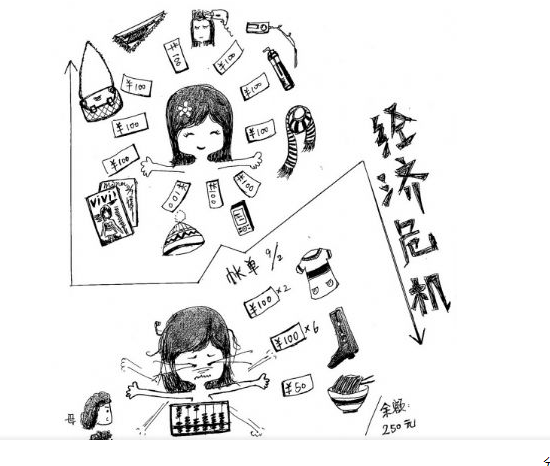 ¥100
¥100
¥100
¥100
¥100
¥100
¥100
¥100
¥100
¥100
ViVi
经济危机
帐单 9/2
¥100 ×2
¥100 ×6
¥50
余额:
250元
母